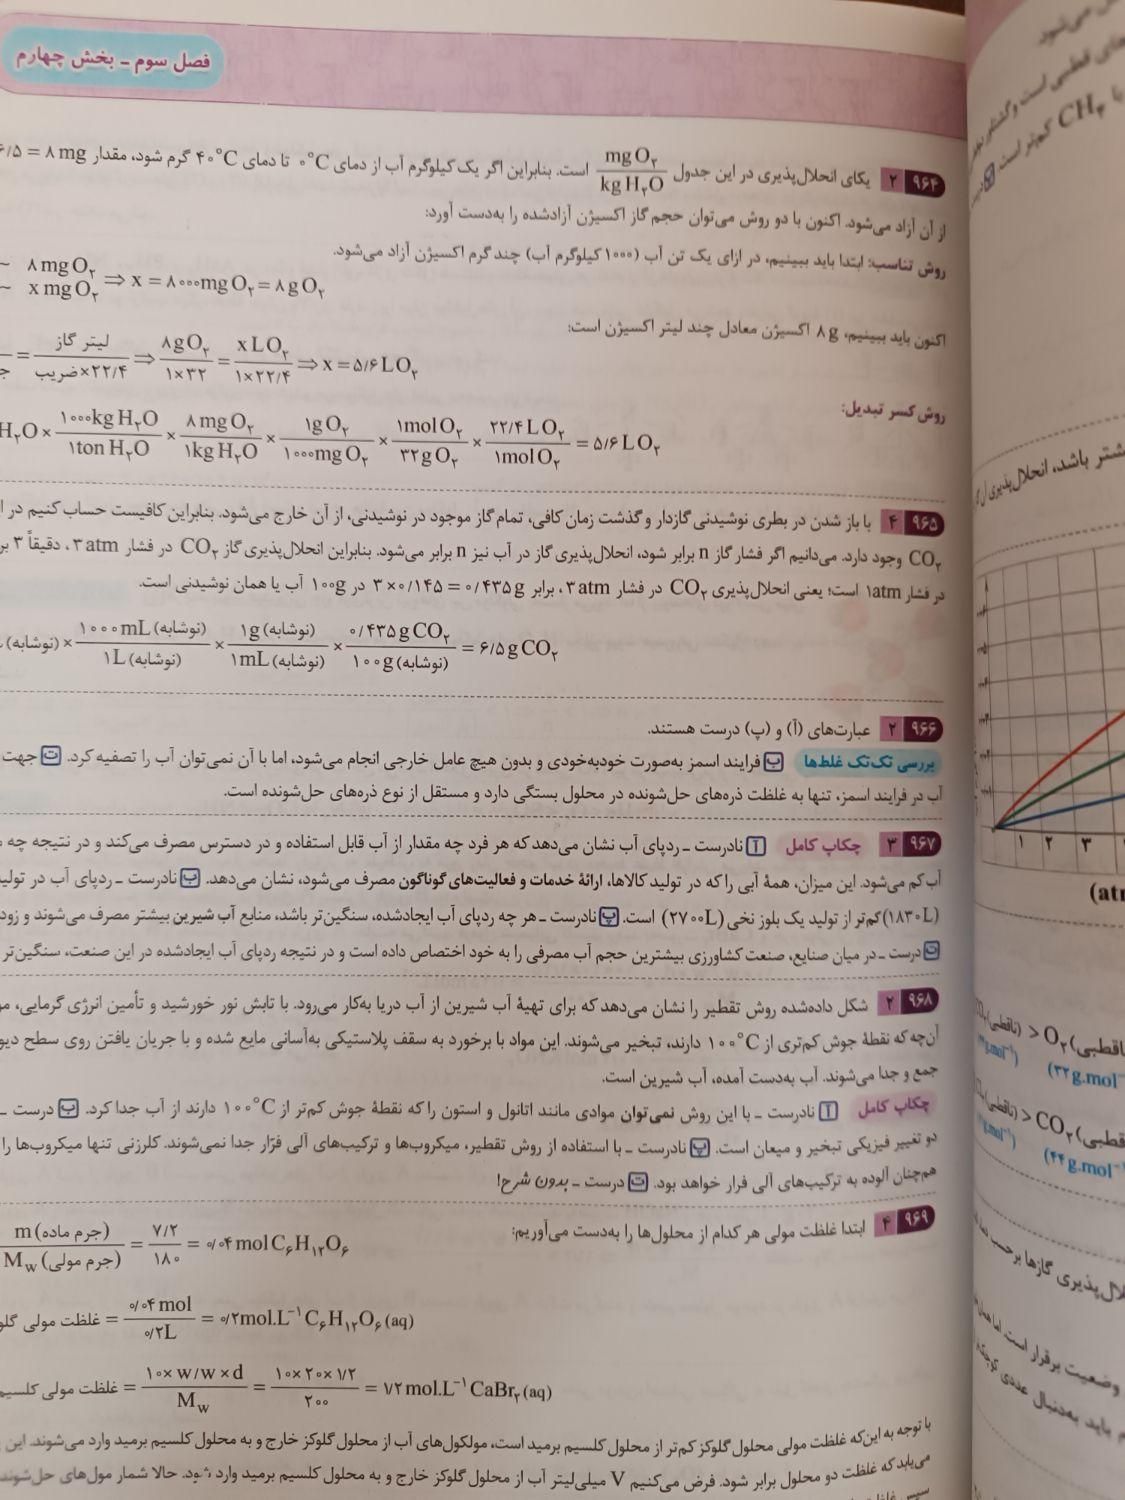 فصل سوم ـ بخش چهارم
۹۶۴ ۲ یکای انحلال‌پذیری در این جدول mg O₂ / kg H₂O است. بنابراین اگر یک کیلوگرم آب از دمای ۰°C تا دمای ۴۰°C گرم شود، مقدار ۶/۵ = ۸ mg
از آن آزاد می‌شود. اکنون با دو روش می‌توان حجم گاز اکسیژن آزادشده را به‌دست آورد:
روش تناسب: ابتدا باید ببینیم، در ازای یک تن آب (۱۰۰۰ کیلوگرم آب) چند گرم اکسیژن آزاد می‌شود.
~ ۸ mg O₂
~ x mg O₂ ⇒ x = ۸۰۰۰ mg O₂ = ۸ g O₂
اکنون باید ببینیم، ۸ g اکسیژن معادل چند لیتر اکسیژن است:
= لیتر گاز / ضریب × ۲۲/۴ ⇒ ۸ g O₂ / ۱×۳۲ = x L O₂ / ۱×۲۲/۴ ⇒ x = ۵/۶ L O₂
روش کسر تبدیل:
H₂O × ۱۰۰۰ kg H₂O / ۱ ton H₂O × ۸ mg O₂ / ۱ kg H₂O × ۱ g O₂ / ۱۰۰۰ mg O₂ × ۱ mol O₂ / ۳۲ g O₂ × ۲۲/۴ L O₂ / ۱ mol O₂ = ۵/۶ L O₂
۹۶۵ ۴ با باز شدن در بطری نوشیدنی گازدار و گذشت زمان کافی، تمام گاز موجود در نوشیدنی، از آن خارج می‌شود. بنابراین کافیست حساب کنیم در
CO₂ وجود دارد. می‌دانیم اگر فشار گاز n برابر شود، انحلال‌پذیری گاز در آب نیز n برابر می‌شود. بنابراین انحلال‌پذیری گاز CO₂ در فشار ۳ atm، دقیقاً ۳
در فشار ۱ atm است؛ یعنی انحلال‌پذیری CO₂ در فشار ۳ atm، برابر ۳ × ۰/۱۴۵ = ۰/۴۳۵ g در ۱۰۰ g آب یا همان نوشیدنی است.
(نوشابه) × ۱۰۰۰ mL (نوشابه) / ۱ L (نوشابه) × ۱ g (نوشابه) / ۱ mL (نوشابه) × ۰/۴۳۵ g CO₂ / ۱۰۰ g (نوشابه) = ۶/۵ g CO₂
۹۶۶ ۲ عبارت‌های (آ) و (پ) درست هستند.
بررسی تک‌تک غلط‌ها ب فرایند اسمز به‌صورت خودبه‌خودی و بدون هیچ عامل خارجی انجام می‌شود، اما با آن نمی‌توان آب را تصفیه کرد. ت جهت
آب در فرایند اسمز، تنها به غلظت ذره‌های حل‌شونده در محلول بستگی دارد و مستقل از نوع ذره‌های حل‌شونده است.
۹۶۷ ۳ چکاپ کامل آ نادرست ـ ردپای آب نشان می‌دهد که هر فرد چه مقدار از آب قابل استفاده و در دسترس مصرف می‌کند و در نتیجه چه
آب کم می‌شود. این میزان، همۀ آبی را که در تولید کالاها، ارائۀ خدمات و فعالیت‌های گوناگون مصرف می‌شود، نشان می‌دهد. ب نادرست ـ ردپای آب در
(۱۸۳۰ L) کم‌تر از تولید یک بلوز نخی (۲۷۰۰ L) است. پ نادرست ـ هر چه ردپای آب ایجادشده، سنگین‌تر باشد، منابع آب شیرین بیشتر مصرف می‌شوند و
ت درست ـ در میان صنایع، صنعت کشاورزی بیشترین حجم آب مصرفی را به خود اختصاص داده است و در نتیجه ردپای آب ایجادشده در این صنعت، سنگین‌تر
۹۶۸ ۲ شکل داده‌شده روش تقطیر را نشان می‌دهد که برای تهیۀ آب شیرین از آب دریا به‌کار می‌رود. با تابش نور خورشید و تأمین انرژی گرمایی،
آن‌چه که نقطۀ جوش کم‌تری از ۱۰۰°C دارند، تبخیر می‌شوند. این مواد با برخورد به سقف پلاستیکی به‌آسانی مایع شده و با جریان یافتن روی سطح
جمع و جدا می‌شوند. آب به‌دست آمده، آب شیرین است.
چکاپ کامل آ نادرست ـ با این روش نمی‌توان موادی مانند اتانول و استون را که نقطۀ جوش کم‌تر از ۱۰۰°C دارند از آب جدا کرد. ب درست ـ
دو تغییر فیزیکی تبخیر و میعان است. پ نادرست ـ با استفاده از روش تقطیر، میکروب‌ها و ترکیب‌های آلی فرّار جدا نمی‌شوند. کلرزنی تنها میکروب‌ها را
هم‌چنان آلوده به ترکیب‌های آلی فرار خواهد بود. ت درست ـ بدون شرح!
۹۶۹ ۴ ابتدا غلظت مولی هر کدام از محلول‌ها را به‌دست می‌آوریم:
m (جرم ماده) / M_w (جرم مولی) = ۷/۲ / ۱۸۰ = ۰/۰۴ mol C₆H₁₂O₆
غلظت مولی = ۰/۰۴ mol / ۰/۲ L = ۰/۲ mol.L⁻¹ C₆H₁₂O₆ (aq)
غلظت مولی کلسیم = ۱۰ × w/w × d / M_w = ۱۰ × ۲۰ × ۱/۲ / ۲۰۰ = ۱/۲ mol.L⁻¹ CaBr₂ (aq)
با توجه به این‌که غلظت مولی محلول گلوکز کم‌تر از محلول کلسیم برمید است، مولکول‌های آب از محلول گلوکز خارج و به محلول کلسیم برمید وارد می‌شوند. این
می‌یابد که غلظت دو محلول برابر شود. فرض می‌کنیم V میلی‌لیتر آب از محلول گلوکز خارج و به محلول کلسیم برمید وارد شود. حالا شمار مول‌های حل‌شونده
قطبی است و گشتاور
CH₄ کم‌تر است.
باشد، انحلال‌پذیری
۱ ۲ ۳
(ناقطبی) O₂ >
(۳۲ g.mol⁻
CO₂ >
(۴۴ g.mol⁻¹
پذیری گازها برحسب
وضعیت برقرار است. اما
باید به‌دنبال عددی کوچک